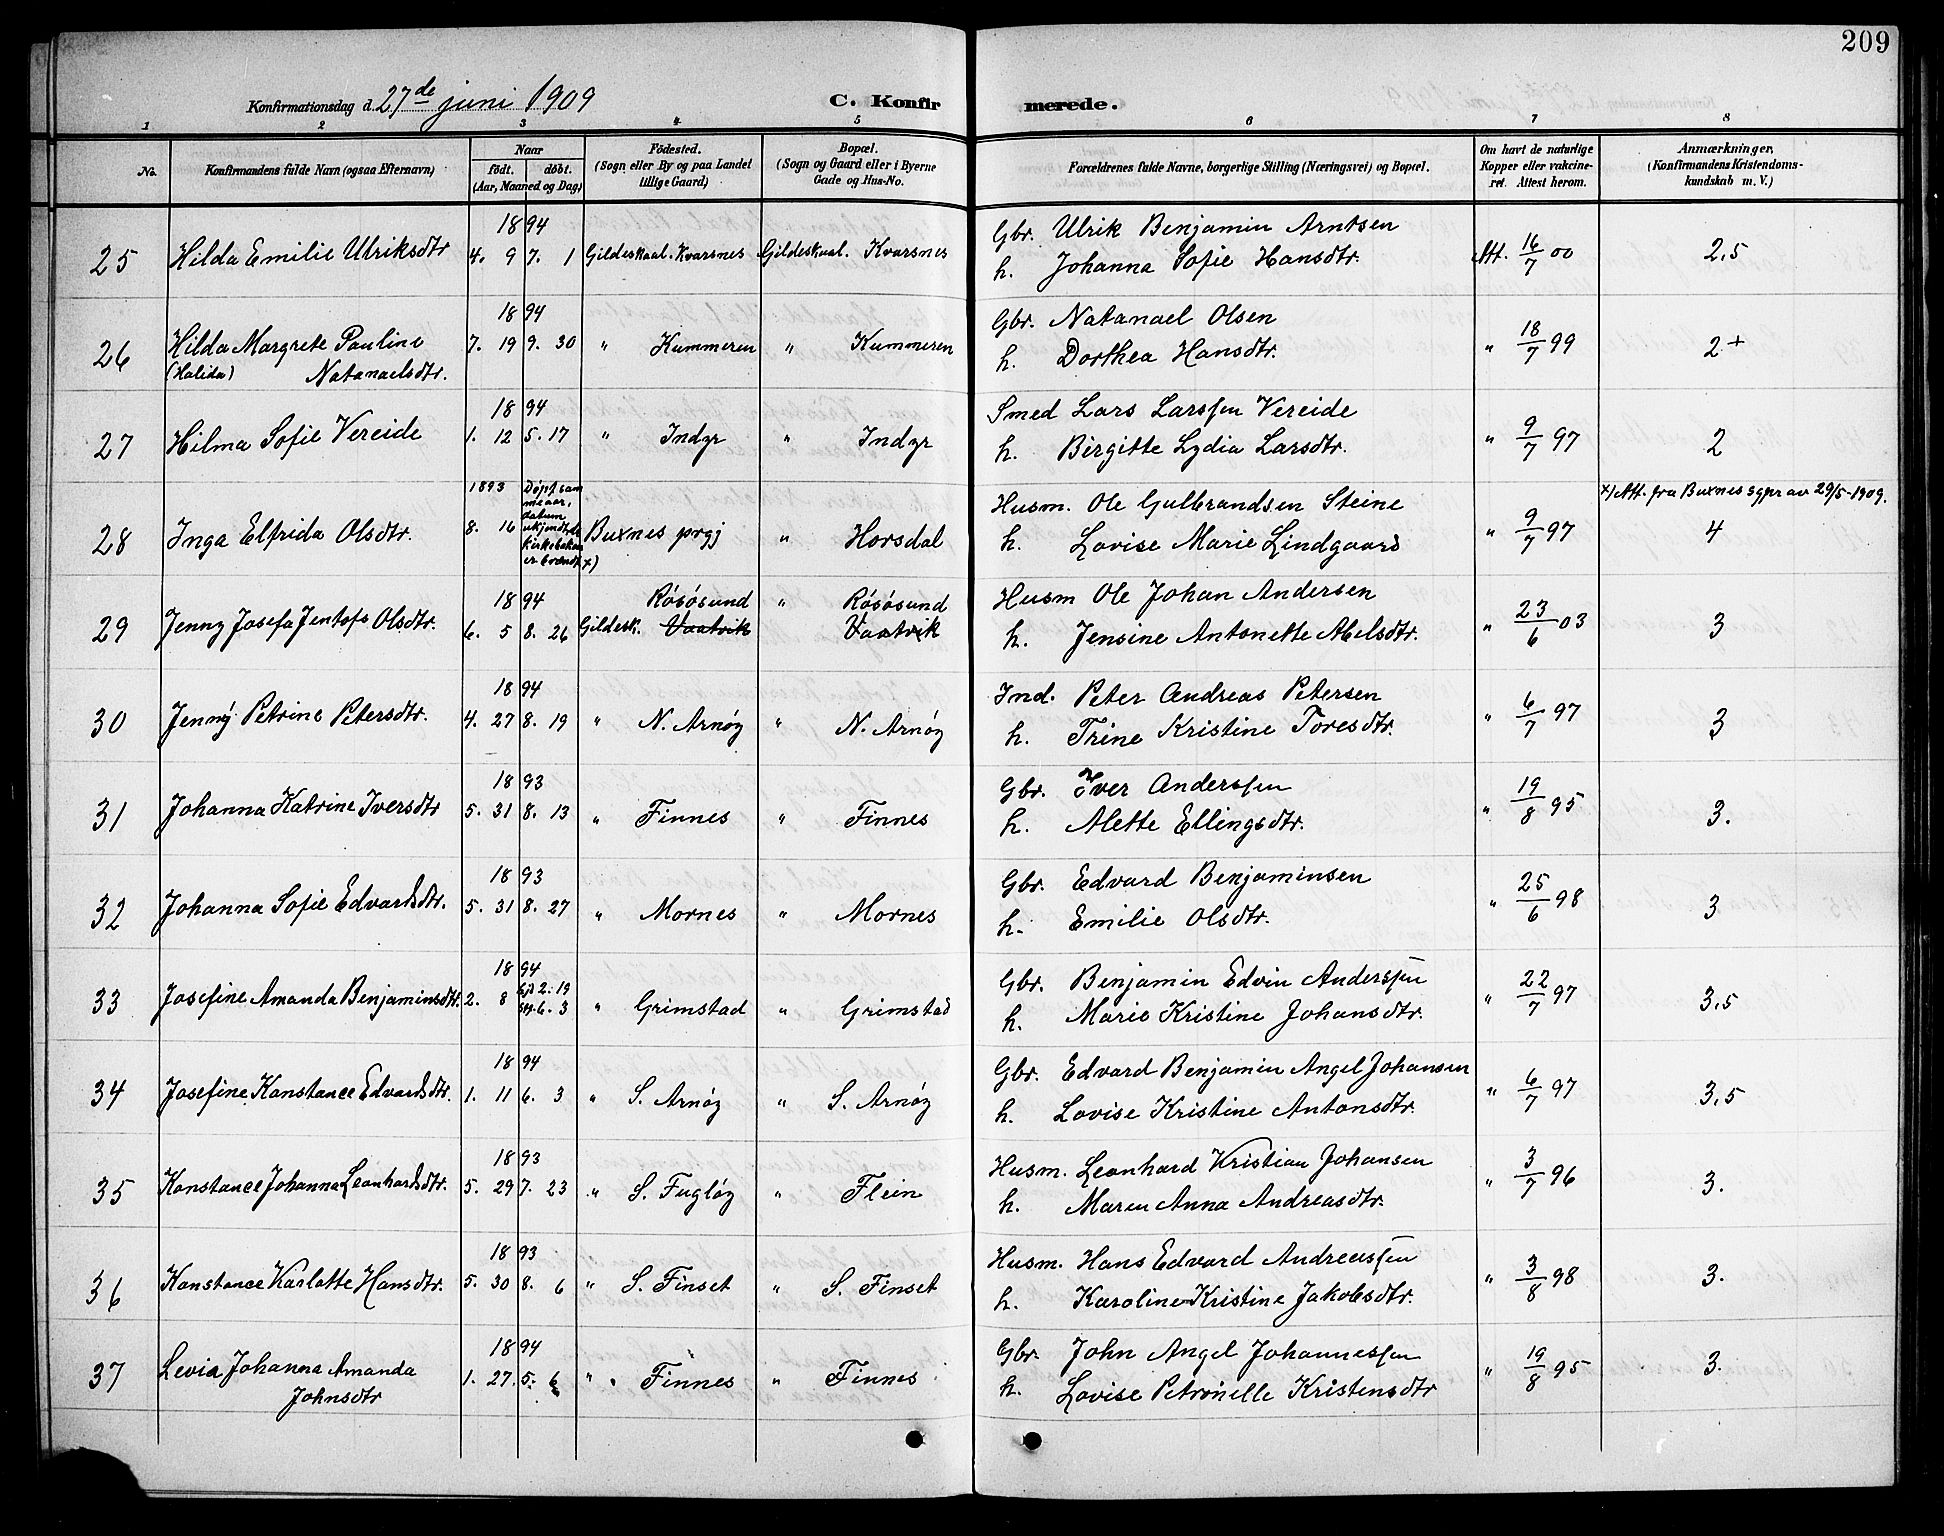 209
Konfirmationsdag d. 27de juni 1909 C. Konfirmerede.
1 2 3 4 5 6 7 8
No. Konfirmandens fulde Navn (ogsaa Efternavn) Naar født. døbt. (Aar, Maaned og Dag) Fødested. (Sogn eller By og paa Landet tillige Gaard) Bopæl. (Sogn og Gaard eller i Byerne Gade og Hus-No. Forældrenes fulde Navne, borgerlige Stilling (Næringsvei) og Bopæl. Om havt de naturlige Kopper eller vakcineret. Attest herom. Anmærkninger, (Konfirmandens Kristendomskundskab m. V.)
1894 Gbr. Ulrik Benjamin Arntsen
25 Hilda Emilie Ulriksdtr 4. 9 7. 1 Gildeskaal. Kvarsnes Gildeskaal. Kvarsnes h. Johanna Sofie Hansdtr. Att. 16/7 00 2,5
1894 Gbr. Natanael Olsen
26 Hilda Margrete Pauline 7. 19 9. 30 " Kummeren " Kummeren h. Dorthea Hansdtr. " 18/7 99 2+
(Halida) Natanaelsdtr.
1894 Smed Lars Larssen Vereide
27 Hilma Sofie Vereide 1. 12 5. 17 " Indyr " Indyr h. Birgitte Lydia Larsdtr. " 9/7 97 2
1893 Døpt samme aar, datum ukjendt, kirkeboken er brændt x) Husm. Ole Gulbrandsen Steine x) Att. fra Buxnes sgpr av 29/5-1909.
28 Inga Elfrida Olsdtr. 8. 16 Buxnes prgj " Horsdal h. Lovise Marie Lindgaard " 9/7 97 4
1894 Røsøsund " Røsøsund Husm Ole Johan Andersen
29 Jenny Josefa Jentofs Olsdtr. 6. 5 8. 26 Gildesk. Vaatvik Vaatvik h. Jensine Antonette Abelsdtr. " 23/6 03 3
1894 Ind. Peter Andreas Petersen
30 Jenny Petrine Petersdtr. 4. 27 8. 19 " N. Arnøy " N. Arnøy h. Trine Kristine Toresdtr. " 6/7 97 3
1893 Gbr. Iver Anderssen
31 Johanna Katrine Iversdtr 5. 31 8. 13 " Finnes " Finnes h. Alette Ellingsdtr. " 19/8 95 3.
1893 Gbr. Edvard Benjaminsen
32 Johanna Sofie Edvardsdtr. 5. 31 8. 27 " Mornes " Mornes h. Emilie Olsdtr. " 25/6 98 3
1894 Gbr. Benjamin Edvin Anderssen
33 Josefine Amanda Benjaminsdtr. 2. 8 2. 19 6. 3 " Grimstad " Grimstad h. Marie Kristine Johansdtr. " 22/7 97 3,5
1894 Gbr. Edvard Benjamin Angel Johansen
34 Josefine Konstance Edvardsdtr. 1. 11 6. 3 " S. Arnøy " S. Arnøy h. Lovise Kristine Antonsdtr. " 6/7 97 3,5
1893 Husm. Leonhard Kristian Johansen
35 Konstance Johanna Leonhardsdtr. 5. 29 7. 23 " S. Fugløy " Flein h. Maren Anna Andreasdtr. " 3/7 96 3.
1893 Husm. Hans Edvard Andreassen
36 Konstance Karlotte Hansdtr. 5. 30 8. 6 " S. Finset " S. Finset h. Karoline Kristine Jakobsdtr. " 3/8 98 3.
1894 Gbr. John Angel Johannessen
37 Levia Johanna Amanda 1. 27. 5. 6 " Finnes " Finnes h. Lovise Petronelle Kristensdtr " 19/8 95 3.
Johnsdtr